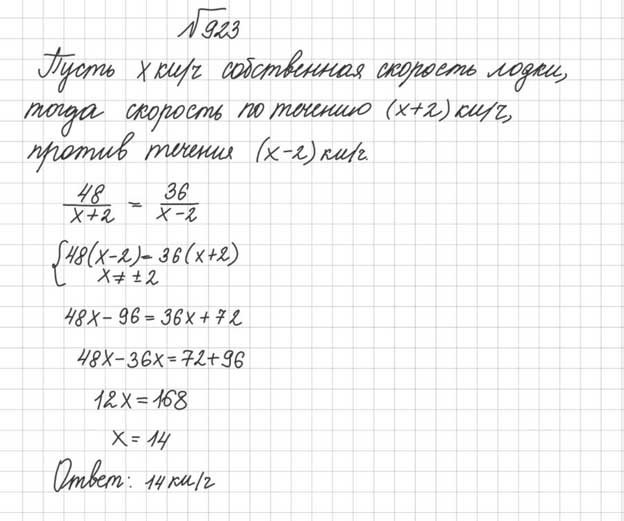 √923
Пусть x км/ч собственная скорость лодки,
тогда скорость по течению (x+2) км/ч,
против течения (x-2) км/ч.
48/(x+2) = 36/(x-2)
{48(x-2) = 36(x+2)
x ≠ ±2
48x - 96 = 36x + 72
48x - 36x = 72 + 96
12x = 168
x = 14
Ответ: 14 км/ч